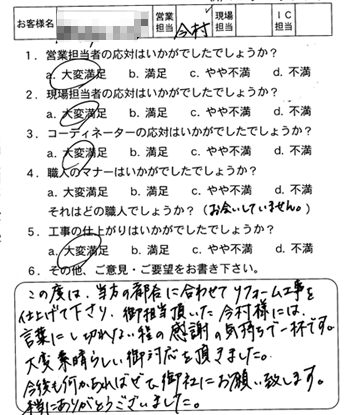 お客様名 営業担当 今村 現場担当 IC担当
1．営業担当者の応対はいかがでしたでしょうか？
a. 大変満足 b. 満足 c. やや不満 d. 不満
2．現場担当者の応対はいかがでしたでしょうか？
a. 大変満足 b. 満足 c. やや不満 d. 不満
3．コーディネーターの応対はいかがでしたでしょうか？
a. 大変満足 b. 満足 c. やや不満 d. 不満
4．職人のマナーはいかがでしたでしょうか？
a. 大変満足 b. 満足 c. やや不満 d. 不満
それはどの職人でしょうか？（お会いしていません。）
5．工事の仕上がりはいかがでしたでしょうか？
a. 大変満足 b. 満足 c. やや不満 d. 不満
6．その他、ご意見・ご要望をお書き下さい。
この度は、当方の都合に合わせてリフォーム工事を
仕上げて下さり、御担当頂いた今村様には、
言葉にし切れない程の感謝の気持ちで一杯です。
大変素晴らしい御対応を頂きました。
今後も何かあればぜひ御社にお願い致します。
本当にありがとうございました。